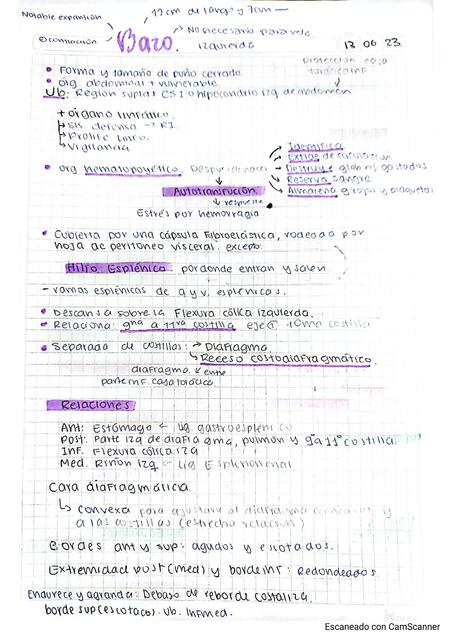 Notable expansión
12 cm de largo y 7cm
→ No necesario para vida
contracción
Bazo.
izquierda
13 06 23
protección caja
torácica inf
• Forma y tamaño de puño cerrado
• org abdominal + vulnerable
Ub: Región suplat CSI o hipocondrio izq de abdomen
+ órgano linfático
Sis. defensa → R.I.
Prolife linfo.
Vigilancia
• org hematopoyético. Después nacer
Identifica
Extrae de circulación
Destruye globrj gastados
Reserva sangre
Almacena g rojos y plaquetas
Autotransfución
↓ respuesta
Estrés por hemorragia
• Cubierta por una cápsula fibroelástica, rodeado por
hoja de peritoneo visceral. excepto:
Hilio Esplénico: por donde entran y salen
- ramas esplénicas de a y v. esplénicas.
• Descansa sobre la Flexura cólica izquierda.
• Relaciona: 9na a 11va costilla eje 10ma costilla
• Separado de costillas: → Diafragma
→ Receso costodiafragmático.
diafragma. ↙ entre
parte inf. caja torácica
Relaciones
Ant: Estómago ← lig gastroesplénico
Post: Parte izq de diafragma, pulmón y 9a 11° costilla.
Inf. Flexura cólica izq
Med. Riñón izq ← Lig Esplenorrenal
Cara diafragmática
↳ convexa para ajustarse al diafragma y
a las costillas (estrecha relación)
Bordes ant y sup: agudos y escotados.
Extremidad post (med) y borde inf: Redondeados.
Endurece y agranda: Debajo de reborde costal izq.
borde sup (escotado). Ub. Infmed.
Escaneado con CamScanner